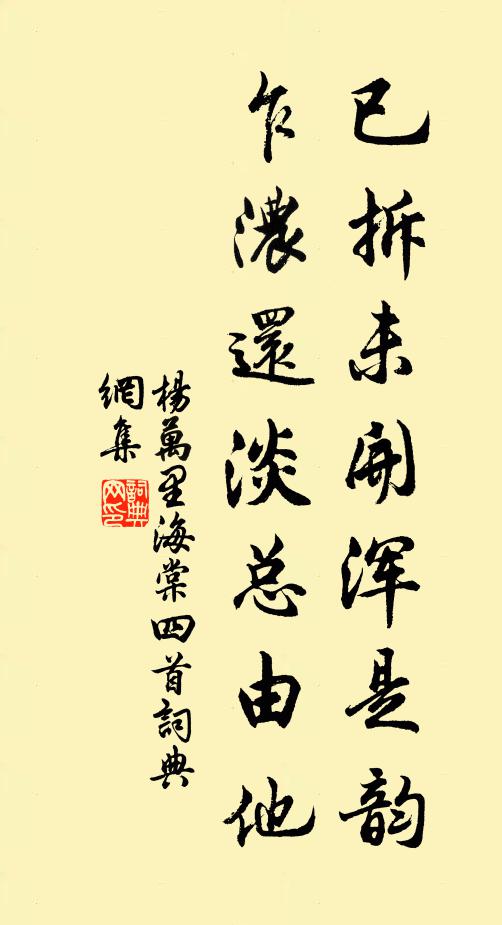 已拆未開浑是韵
乍濃還淡总由他
楊萬里海棠四首詞典
網集
詞典
网印